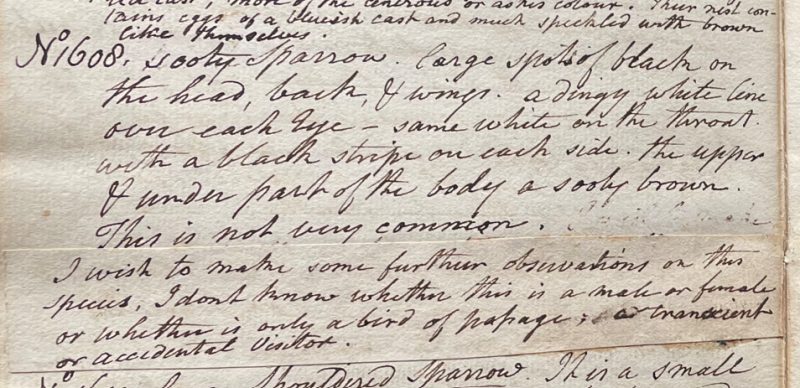 red cast, more of the cinerous or ashes colour. Their nest con-
tains eggs of a blueish cast and much speckled with brown
like themselves.
No 1608. Sooty Sparrow. large spots of black on
the head, back, & wings. a dingy white line
over each Eye – same white on the throat.
with a black stripe on each side. the upper
& under part of the body a sooty brown.
This is not very common.
I wish to make some further observations on this
species, I dont know whether this is a male or female
or whether is only a bird of passage; or transcient
or accidental visitor.
No Shouldered Sparrow. It is a small